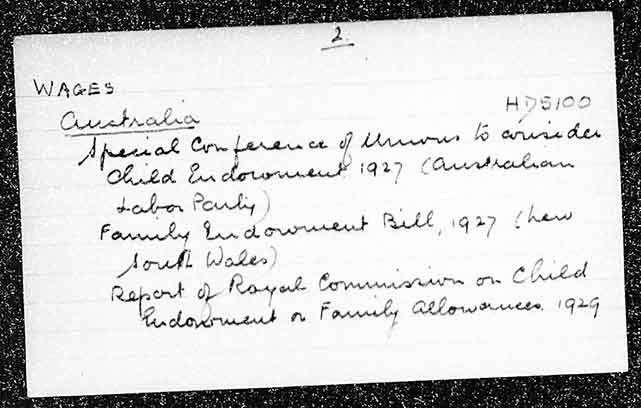 2.
WAGES
HD5100
Australia
Special Conference of Unions to consider
Child Endowment 1927 (Australian
Labor Party)
Family Endowment Bill, 1927 (New
South Wales)
Report of Royal Commission on Child
Endowment or Family Allowances. 1929